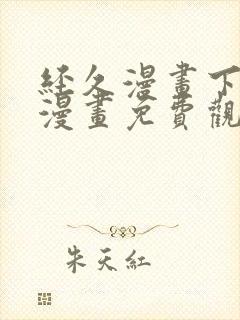 經久漫畫下
漫畫免費觀
朱天紅